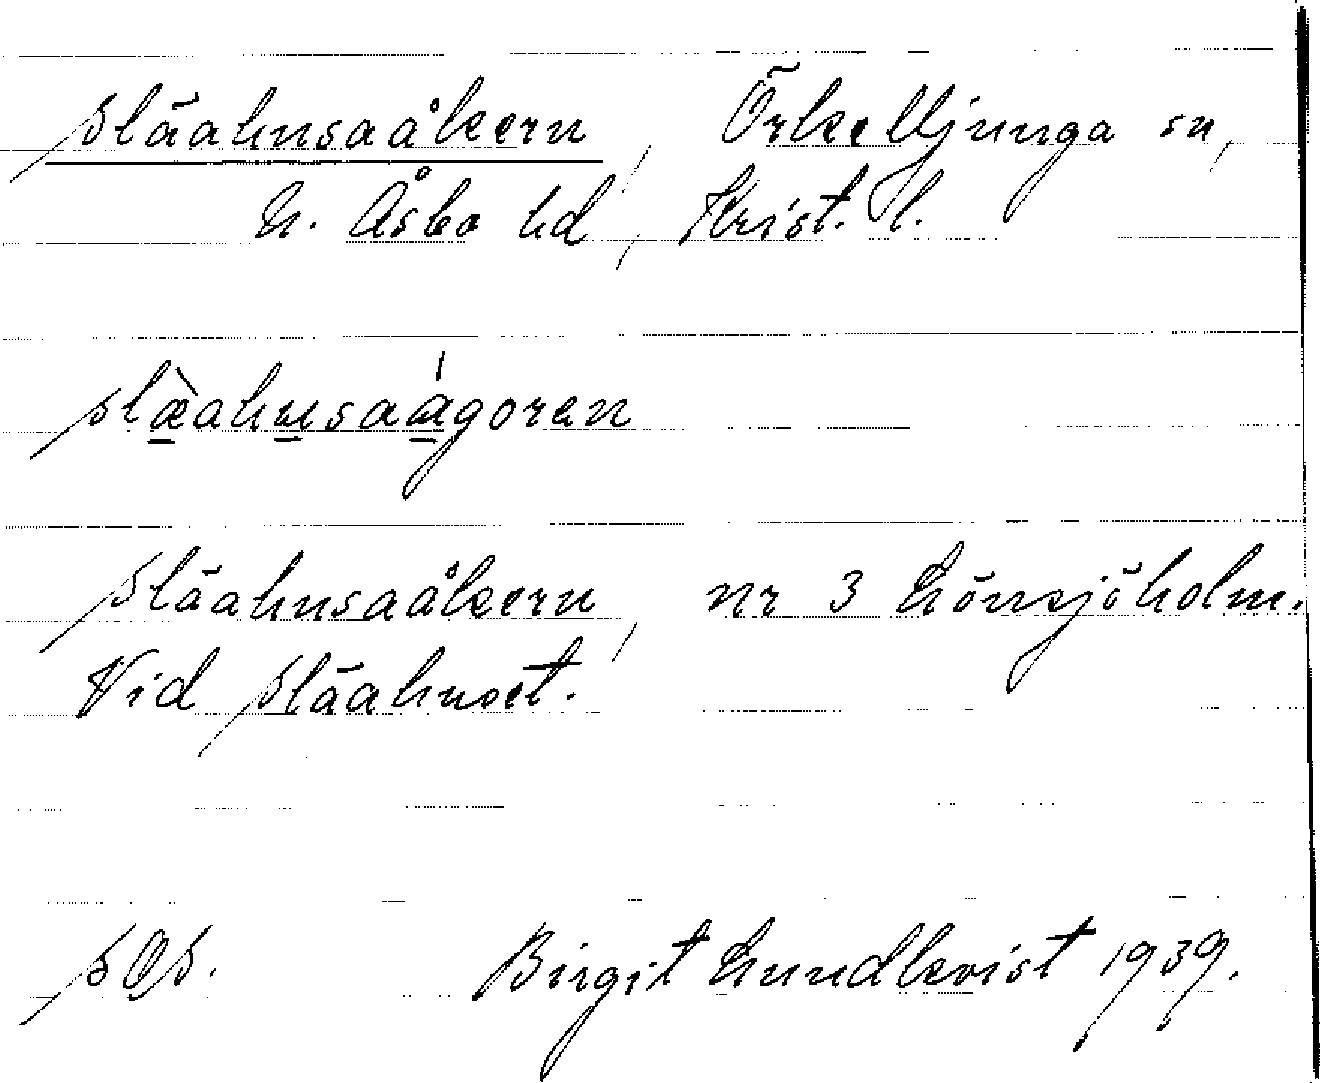 Släahusaåkern, Örkelljunga sn,
N. Åsbo hd, Krist. l.
slæ̀ahusaágoren
Släahusaåkern, nr 3 Lönsjöholm.
Vid Släahuset.
Birgit Lundkvist 1939.